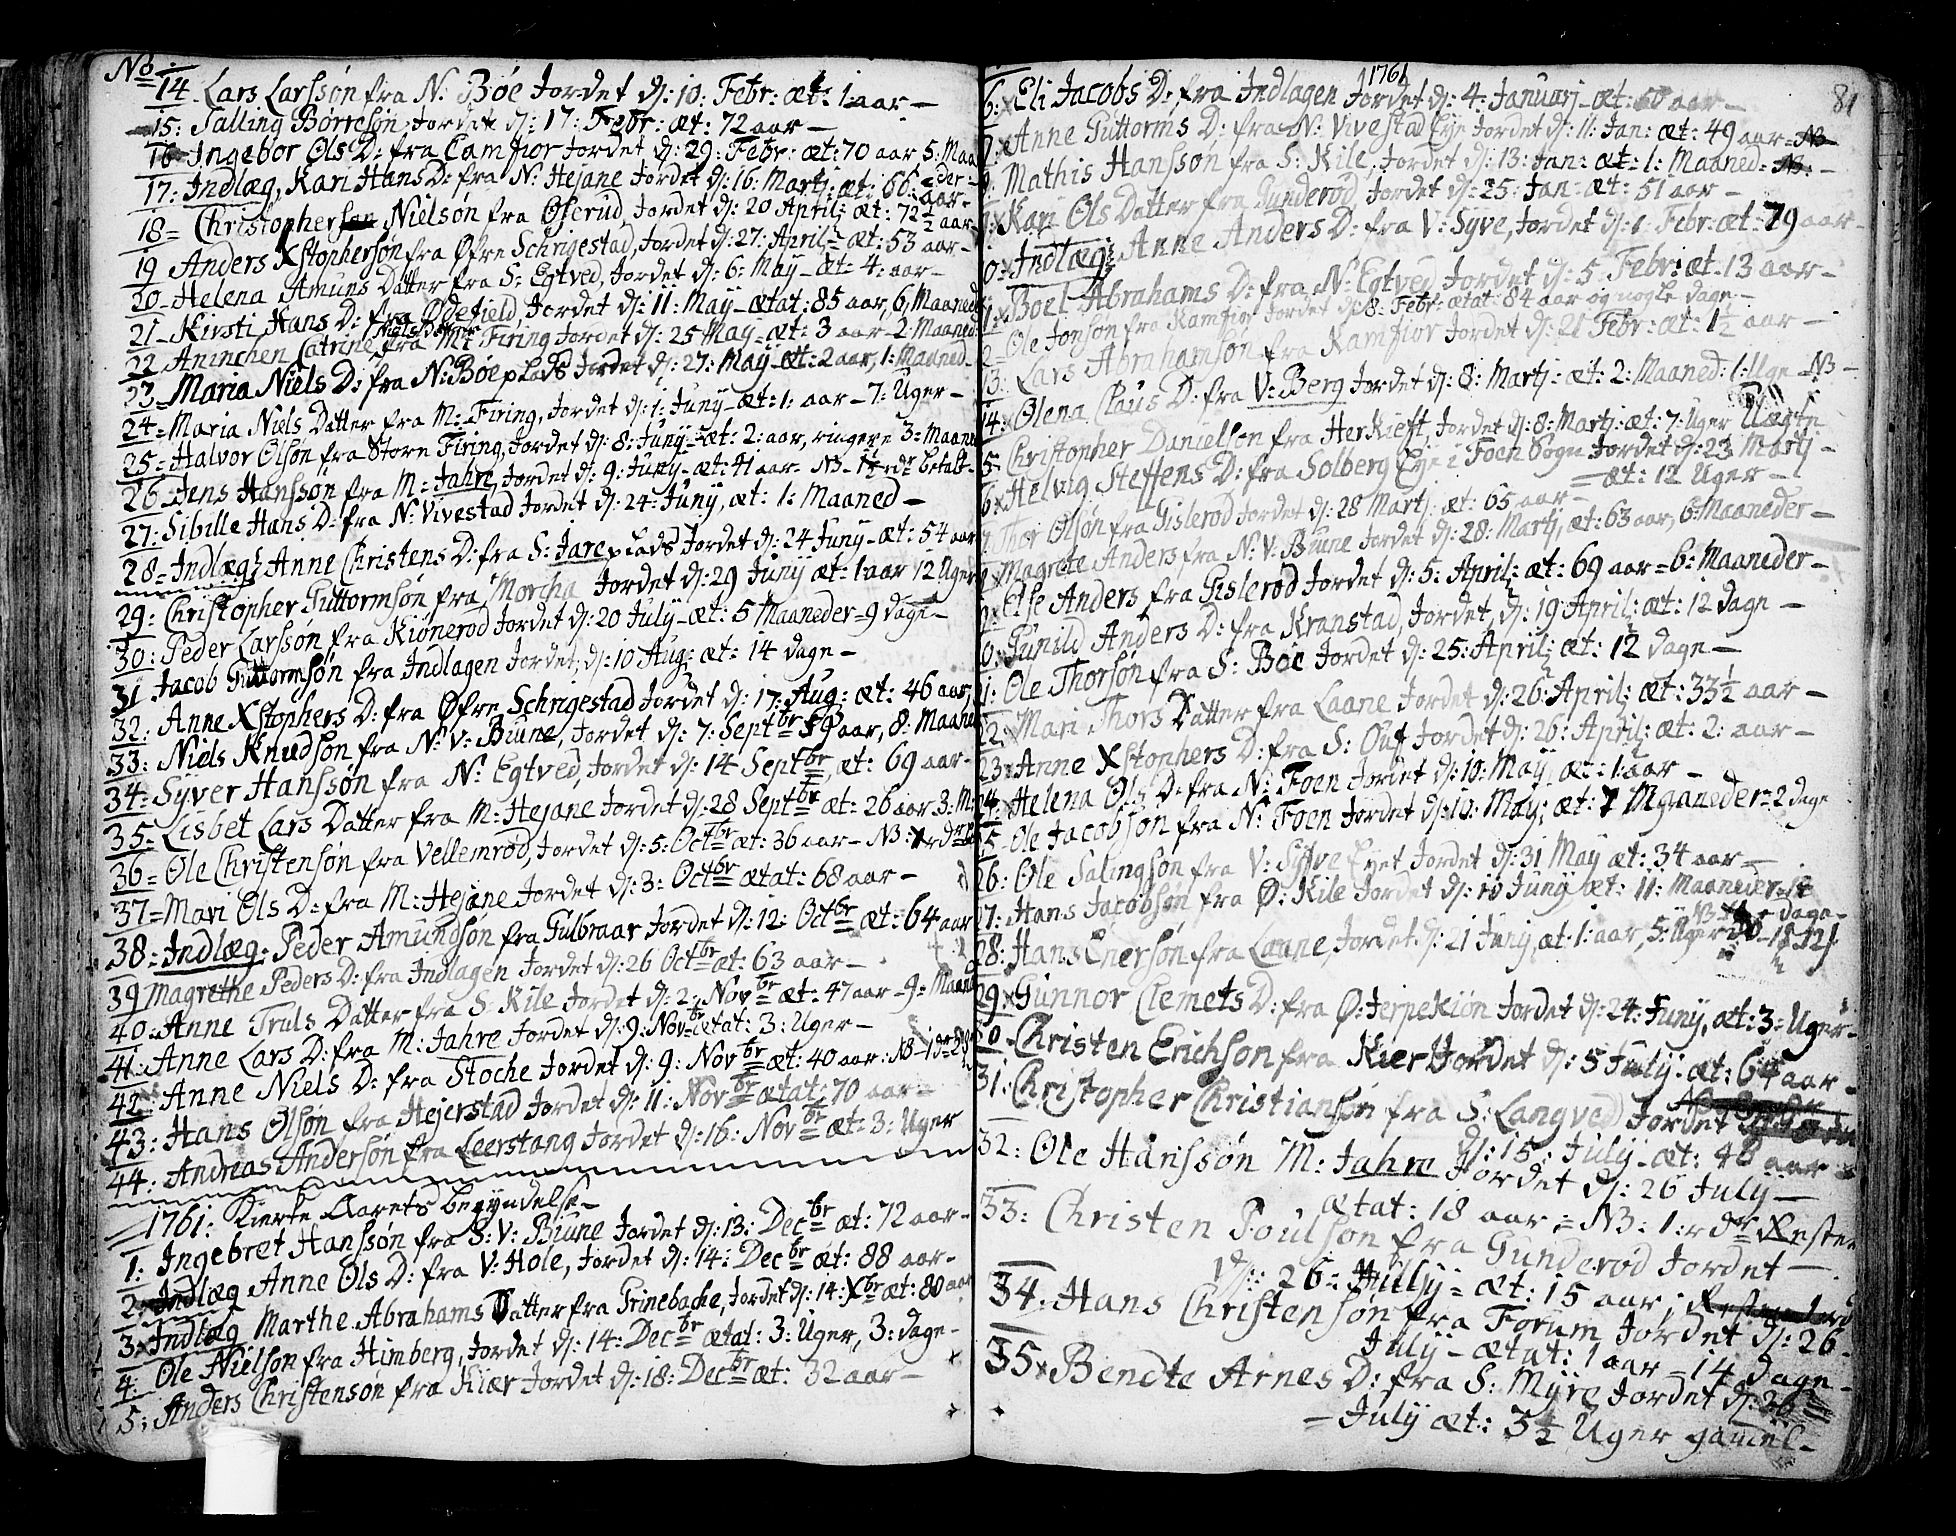 No
14. Lars Larssøn fra N: Bøe Jordet d: 10: Febr: æt: 1 aar —
15: Salling Børresøn, Jordet d: 17: Febr: æt: 72 aar —
16 Ingebor Ols D: fra Camfior Jordet d: 29: Febr: æt: 70 aar 5: Maa
eder —
17: Indlæg, Kari Hans D: fra N: Hejane Jordet d: 16: Martj: æt: 66: aar —
18 = Christopher Nielsøn fra Øserud, Jordet d: 20 April: æt: 72 1/2 aar
19 Anders Xstophersøn fra Øfre Schrigestad, Jordet d: 27: April: æt: 53 aar —
20 = Helena Amuns Datter fra S: Egtved, Jordet d: 6: May — æt: 4: aar —
21 — Kirsti Hans D: fra Ødefield Jordet d: 11: May — ætat: 85 aar, 6: Maaned
Niels Datter
22 Aninchen Catrine fra M: Firing Jordet d: 25 May — æt: 3 aar — 2: Maaned:
23 — Maria Niels D: fra N: Bøe plads Jordet d: 27: May — æt: 2 aar, 1: Maaned —
24 = Maria Niels Datter fra M: Firing, Jordet d: 1: Juny — æt: 1: aar — 7: Uger —
25 = Halvor Olsøn fra Store Firing, Jordet d: 8: Juny — æt: 2: aar, ringere 3: Maane
26 = Jens Hanssøn fra M: Jahre, Jordet d: 9: Juny — æt: 41 aar — NB — 1 1/2 rdr betalt —
27: Sibille Hans D: fra N: Vivestad Jordet d: 24: Juny, æt: 1: Maaned —
28 = Indlæg: Anne Christens D: fra S: Jare plads Jordet d: 24 Juny — æt: 54 aar
29: Christopher Guttormsøn fra Morcha Jordet d: 29 Juny æt: 1 aar 12 Uger
30: Peder Larssøn, fra Kiønerød Jordet d: 20 July — æt: 5 Maaneder = 9 dage —
31 Jacob Guttormsøn fra Indlagen Jordet, d: 10 Aug: æt: 14 dage —
32: Anne Xstophers D: fra Øfre Schrigestad Jordet d: 17: Aug: æt: 46 aar,
33: Niels Knudsøn fra N: V: Biune, Jordet d: 7: Septbr 59 aar, 8: Maane
34 = Syver Hanssøn fra N: Egtved, Jordet d: 14 Septbr, æt: 69 aar —
35 = Lisbet Lars Datter fra M: Hejane Jordet d: 28 Septbr æt: 26 aar 3: M:
36 = Ole Christensøn fra Vellemrød, Jordet d: 5: Octbr æt: 36 aar — NB: 1 rdr
37 = Mari Ols D: fra M: Hejane Jordet d: 3: Octbr ætat: 68 aar —
38 = Indlæg. Peder Amundsøn fra Gulbraar Jordet d: 12: Octbr æt: 64 aar
39 Magrethe Peders D: fra Indlagen Jordet d: 26 Octbr æt: 63 aar —
40 = Anne Truls Datter fra S: Kile Jordet d: 2: Novbr æt: 47 aar — 9: Maaned
41: Anne Lars D: fra M: Jahre Jordet d: 9: Novbr ætat: 3: Uger —
42 — Anne Niels D: fra Stoche Jordet d: 9: Novbr æt: 40 aar: NB — 1 dr
43: Hans Olsøn fra Hejerstad Jordet d: 11: Novbr ætat: 70 aar —
44: Andreas Andersøn fra Leerstang Jordet d: 16: Novbr æt: 3: Uger
1761: Kierke Aarets begyndelse —
1: Ingebret Hanssøn fra S: V: Biune Jordet d: 13: Decbr æt: 72 aar —
2: Indlæg Anne Ols D: fra V: Hole, Jordet d: 14: Decbr æt: 88 aar —
3: Indlæg Marthe Abrahams Datter fra Grinebache, Jordet d: 14: Xbr æt: 80 aar
4: Ole Nielsøn fra Himberg, Jordet d: 14: Decbr ætat: 3: Uger, 3: dage —
5: Anders Christensøn fra Kiær Jordet d: 18: Decbr æt: 32 aar —
1761
81
6: x Eli Jacobs D: fra Indlagen Jordet d: 4: Januarj — æt: 50 aar —
7: Anne Guttorms D: fra N: Vivestad Eye Jordet d: 11: Jan: æt: 49 aar = NB
Mathis Hanssøn fra S: Kile, Jordet d: 13: Jan: æt: 1: Maaned = NB: —
Kari Ols Datter fra Gunderød, Jordet d: 25: Jan æt: 51 aar —
0: x Indlæg: Anne Anders D: fra V: Syve, Jordet d: 1: Febr: æt: 79 aar —
1: Boel Abrahams D: fra N: Egtved Jordet d: 5 Febr: æt: 13 aar —
2 — Ole Jonsøn fra Kamfior Jordet d: 8: Febr: ætat: 84 aar og nogle dage —
3: Lars Abrahamsøn fra Kamfior Jordet d: 21 Febr: æt: 1 1/2 aar —
14: Olena Claus D: fra V: Berg Jordet d: 8: Martj: æt: 2: Maaned: 1: Uge NB —
5 Christopher Danielsøn fra Herkieft, Jordet d: 8: Martj: æt: 7: Uger Uægte
6 x Helvig Steffens D: fra Solberg Eye i Foen Sogn Jordet d: 23 Martj —
= æt: 12 Uger —
7. Thor Olsøn fra Gislerød Jordet d: 28 Martj: æt: 65 aar —
Magrete Anders fra N: V: Biune Jordet d: 28: Martj, æt: 63 aar, 6: Maaneder —
x Else Anders fra Gislerød Jordet d: 5: April: æt: 69 aar = 6: Maaneder —
0: Gunild Anders D: fra Kranstad, Jordet, d: 19 April: æt: 12 dage —
1: Ole Thorsøn fra S: Bøe Jordet d: 25: April: æt: 12 dage —
22: Mari Thors Datter fra Laane Jordet d: 26: April: æt: 33 1/2 aar —
23: Anne Xstophers D: fra S: Ouf Jordet d: 26: April: æt: 2: aar —
24: Helena Ols D: fra N: Foen Jordet d: 10: May, æt: 1: aar —
25 — Ole Jacobsøn fra N: Foen Jordet d: 10: May; æt: 7 Maaneder = 2 dage
26: Ole Salingsøn fra V: Syfve Eyet Jordet d: 31 May æt: 34 aar —
27: Hans Jacobsøn fra Ø: Kile Jordet d: 10 Juny æt: 11: Maaneder =
dage —
28: Hans Enersøn fra Laane, Jordet d: 21 Juny, æt: 1: aar, 5: Uger
29 x Gunnor Clemets D: fra Ø: Jerpekiøn Jordet d: 24: Juny, æt: 3: Uger —
30 — Christen Erichsøn fra Kier Jordet d: 5 July: æt: 64 aar —
31: Christopher Christiansøn fra S: Langved Jordet
d: 15: July — æt: 48 aar
32: Ole Hanssøn M: Jahre Jordet d: 26 July —
ætat: 18 aar = NB: 1: rdr Rester
33: Christen Poulsøn fra Gunderød Jordet —
d: 26 = July = æt: 15 aar;
34: Hans Christensøn fra Forum Jordet d: 26 —
July — ætat: 1 aar — 14 dage —
35 x Bendte Arnes D: fra S: Myre Jordet d: 26
— July æt: 3 1/2 Uger gamel —